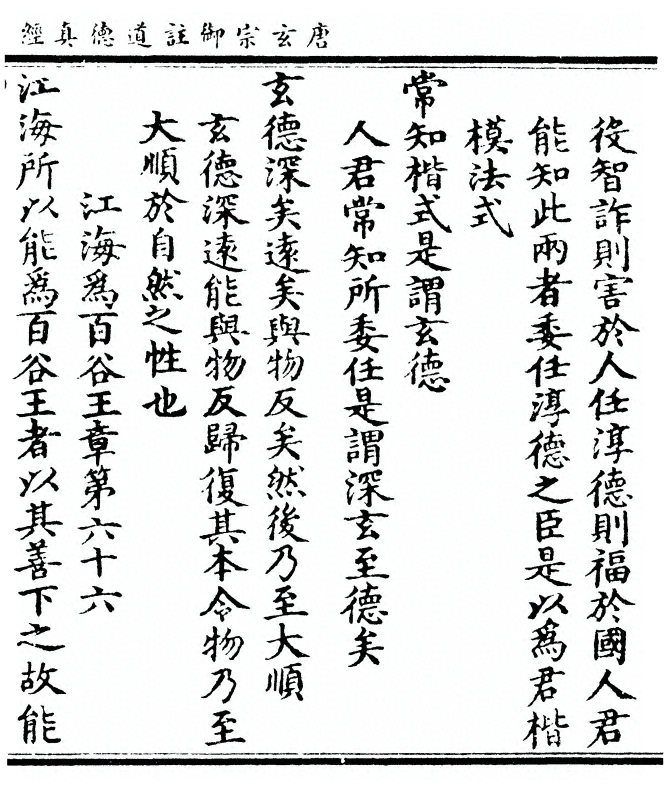 唐玄宗御註道德真經
役智詐則害於人任淳德則福於國人君
能知此兩者委任淳德之臣是以為君楷
模法式
常知楷式是謂玄德
人君常知所委任是謂深玄至德矣
玄德深矣遠矣與物反矣然後乃至大順
玄德深遠能與物反歸復其本令物乃至
大順於自然之性也
江海為百谷王章第六十六
江海所以能為百谷王者以其善下之故能